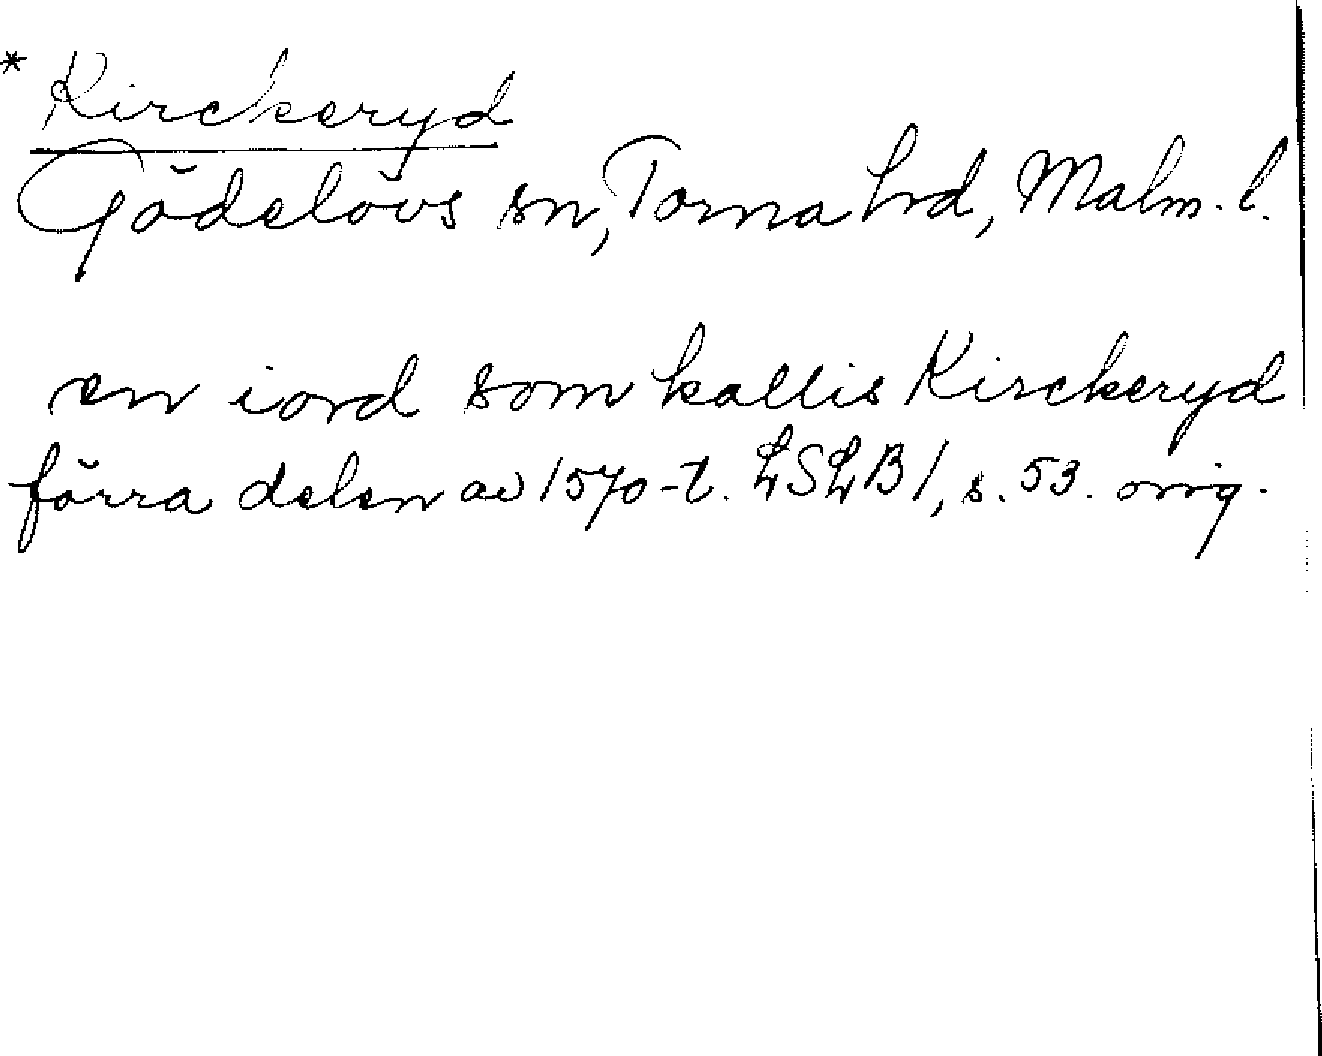 * Kirckeryd
Gödelövs sn, Torna hrd, Malm. l.
en iord som kallis Kirckeryd
förra delen av 1570-t. LSLB 1, s. 53. orig.